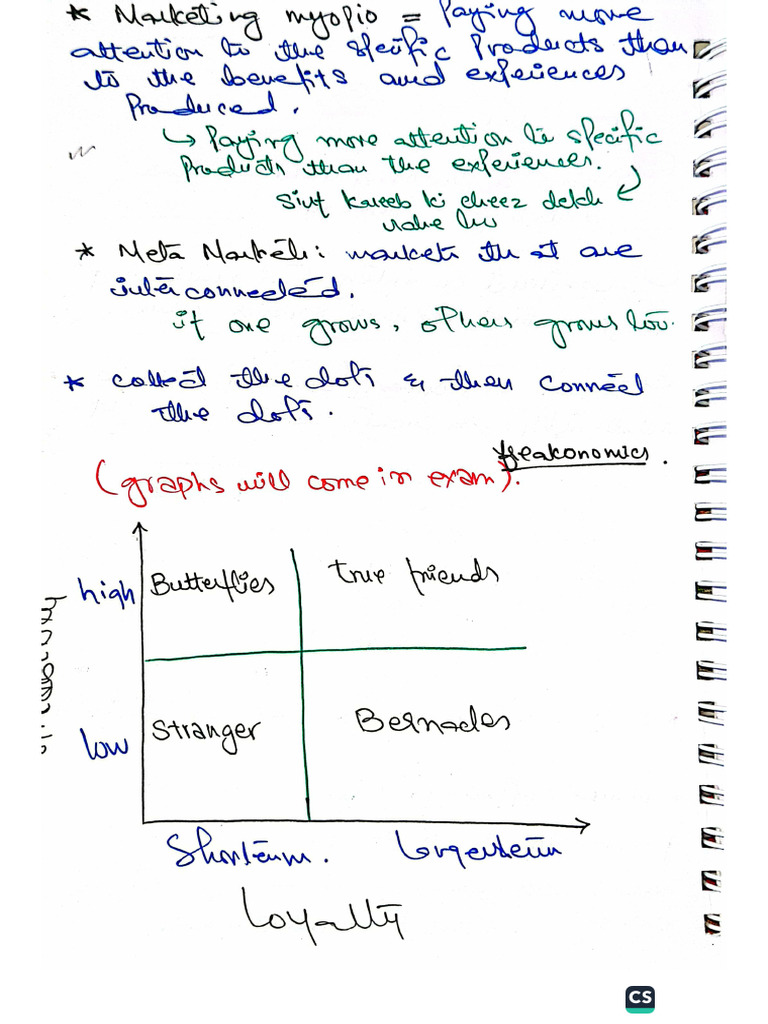 * Marketing myopio = Paying more
attention to the specific Products than
to the benefits and experiences
Produced.
↳ Paying more attention to specific
Products than the experiences.
Sirf kareeb ki cheez dekh
* Meta Markets: markets that are
interconnected.
if one grows, others grows too.
* collect the dots & then connect
the dots.
freakonomics.
(graphs will come in exam).
high
Butterflies
true friends
low
Stranger
Bernacles
Shorterm.
Loyalty
CS